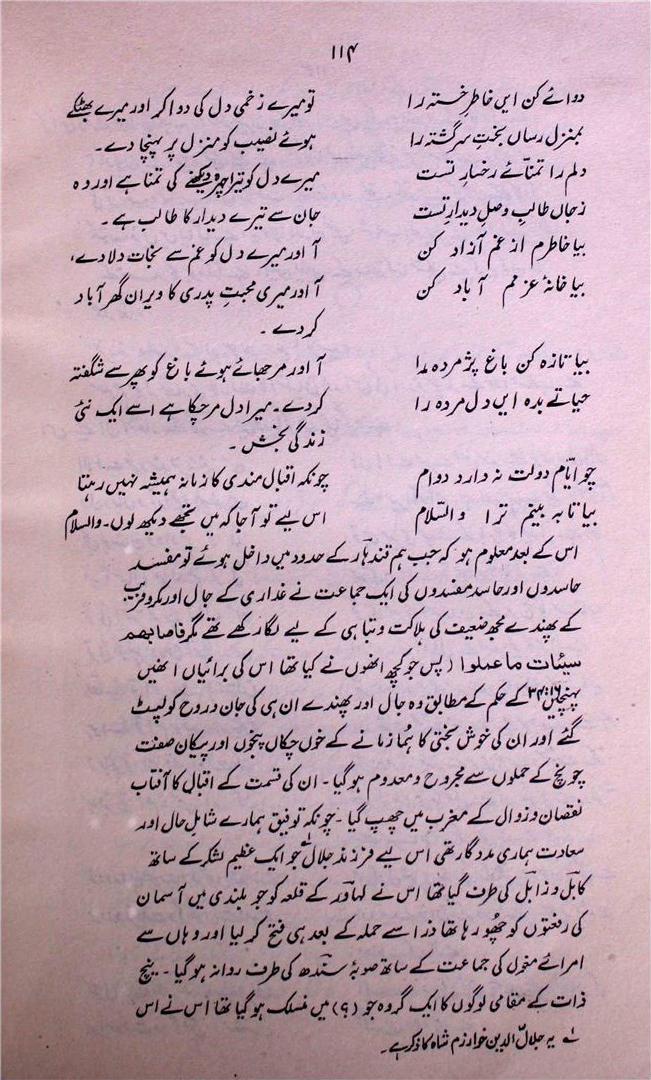 ۱۱۴
دوائے کن ایں خاطرِ خستہ را
بمنزل رساں بختِ سرگشتہ را
دلم را تمنائے رخسارِ تست
زجاں طالبِ وصلِ دیدارِ تست
بیا خاطرم از غم آزاد کن
بیا خانۂ عزمم آباد کن
بیا تازہ کن باغِ پژمردہ را
حیاتے بدہ ایں دل مردہ را
چو ایّام دولت نہ دارد دوام
بیا تا بہ بینم ترا والسّلام
تو میرے زخمی دل کی دوا کر اور میرے بھٹکے
ہوئے نصیب کو منزل پر پہنچا دے۔
میرے دل کو تیرا چہرہ دیکھنے کی تمنا ہے اور وہ
جان سے تیرے دیدار کا طالب ہے۔
آ اور میرے دل کو غم سے نجات دلا دے،
آ اور میری محبتِ پدری کا ویران گھر آباد
کر دے۔
آ اور مرجھائے ہوئے باغ کو پھر سے شگفتہ
کر دے۔ میرا دل مر چکا ہے اسے ایک نئی
زندگی بخش۔
چونکہ اقبال مندی کا زمانہ ہمیشہ نہیں رہتا
اس لیے تو آ جا کہ میں تجھے دیکھ لوں۔ والسلام
اس کے بعد معلوم ہو کہ جب ہم قندہار کے حدود میں داخل ہوئے تو مفسد
حاسدوں اور حاسد مفسدوں کی ایک جماعت نے غداری کے جال اور مکر و فریب
کے پھندے مجھ ضعیف کی ہلاکت و تباہی کے لیے لگا رکھے تھے مگر فاصابھم
سیئات ما عملوا (پس جو کچھ انھوں نے کیا تھا اس کی برائیاں انھیں
پہنچیں ۱۶:۳۴ کے حکم کے مطابق وہ جال اور پھندے ان ہی کی جان و روح کو لپٹ
گئے اور ان کی خوش بختی کا ہُما زمانے کے خوں چکاں پنجوں اور پیکان صفت
چونچ کے حملوں سے مجروح و معدوم ہو گیا۔ ان کی قسمت کے اقبال کا آفتاب
نقصان و زوال کے مغرب میں چھپ گیا۔ چونکہ توفیق ہمارے شاملِ حال اور
سعادت ہماری مددگار تھی اس لیے فرزند جلال؂۱ جو ایک عظیم لشکر کے ساتھ
کابل و زابل کی طرف گیا تھا اس نے لہاور کے قلعہ کو جو بلندی میں آسمان
کی رفعتوں کو چھو رہا تھا ذرا سے حملہ کے بعد ہی فتح کر لیا اور وہاں سے
امرائے مغول کی جماعت کے ساتھ صوبۂ سندھ کی طرف روانہ ہو گیا۔ نیچ
ذات کے مقامی لوگوں کا ایک گروہ جو (؟) میں منسلک ہو گیا تھا اس نے اس
؂۱ یہ جلال الدین خوارزم شاہ کا ذکر ہے۔